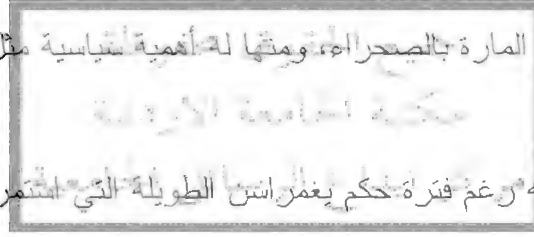 المارة بالصحراء، ومنها له أهمية سياسية مثل
مكتبة الجامعة الأردنية
رغم فترة حكم يغمراسن الطويلة التي استمر